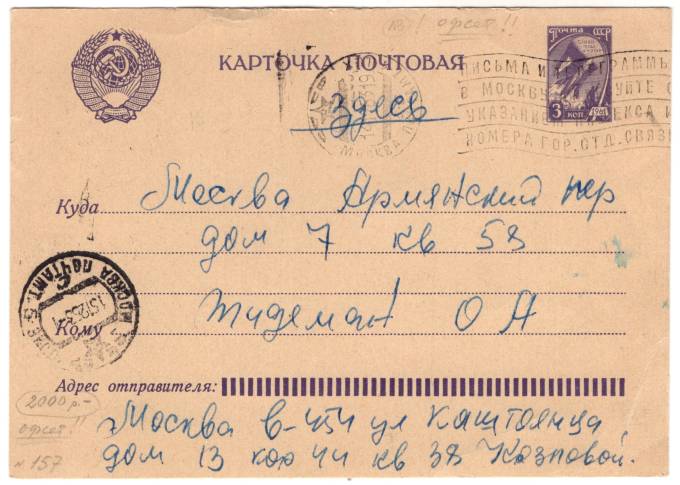 13! офсет!!
ПОЧТА СССР
3 КОП. 1961
КАРТОЧКА ПОЧТОВАЯ
ПИСЬМА И ТЕЛЕГРАММЫ
В МОСКВУ
УКАЗАНИЕМ
НОМЕРА ГОР. ОТД. СВЯЗИ
МОСКВА
Здесь
Куда Москва Армянский пер
дом 7 кв 58
МОСКВА ПОЧТАМТ
Кому Тидеман О А
Адрес отправителя:
2000 р.-
офсет!!
N 157
Москва В-454 ул Каштоянца
дом 13 кор 44 кв 38 Козловой.